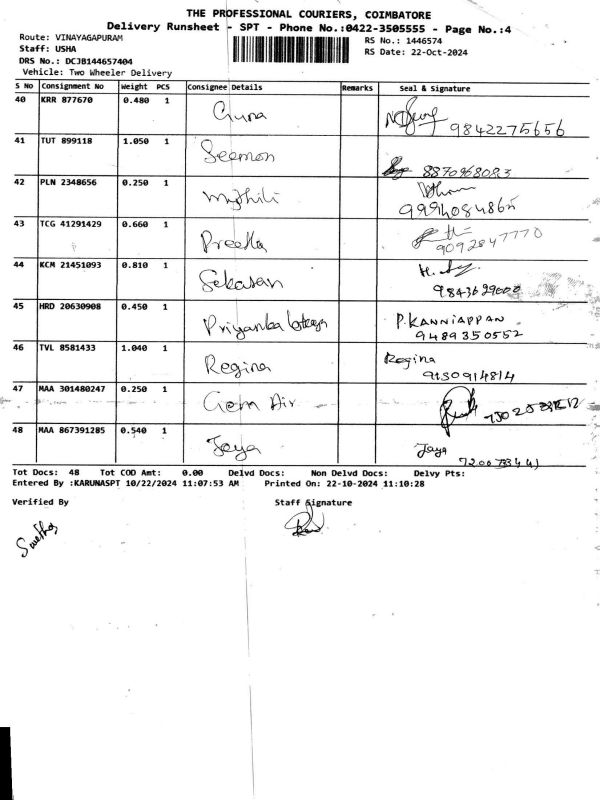 THE PROFESSIONAL COURIERS, COIMBATORE
Delivery Runsheet - SPT - Phone No.:0422-3505555 - Page No.:4
Route: VINAYAGAPURAM
RS No.: 1446574
Staff: USHA
RS Date: 22-Oct-2024
DRS No.: DCJB144657404
Vehicle: Two Wheeler Delivery
S No Consignment No Weight PCS Consignee Details Remarks Seal & Signature
40 KRR 877670 0.480 1 Guna
9842275656
41 TUT 899118 1.050 1 Seemon
8870968083
42 PLN 2348656 0.250 1 Mythili
43 TCG 41291429 0.660 1 Preetha
9092847770
44 KCM 21451093 0.810 1 Sekaran
9843629000
45 HRD 20630908 0.450 1 Priyanka P.KANNIAPPAN
9489350552
46 TVL 8581433 1.040 1 Regina Regina
9150914814
47 MAA 301480247 0.250 1 Gem Air
48 MAA 867391285 0.540 1 Jaya Jaya
Tot Docs: 48 Tot COD Amt: 0.00 Delvd Docs: Non Delvd Docs: Delvy Pts:
Entered By :KARUNASPT 10/22/2024 11:07:53 AM Printed On: 22-10-2024 11:10:28
Verified By Staff Signature
Swetha